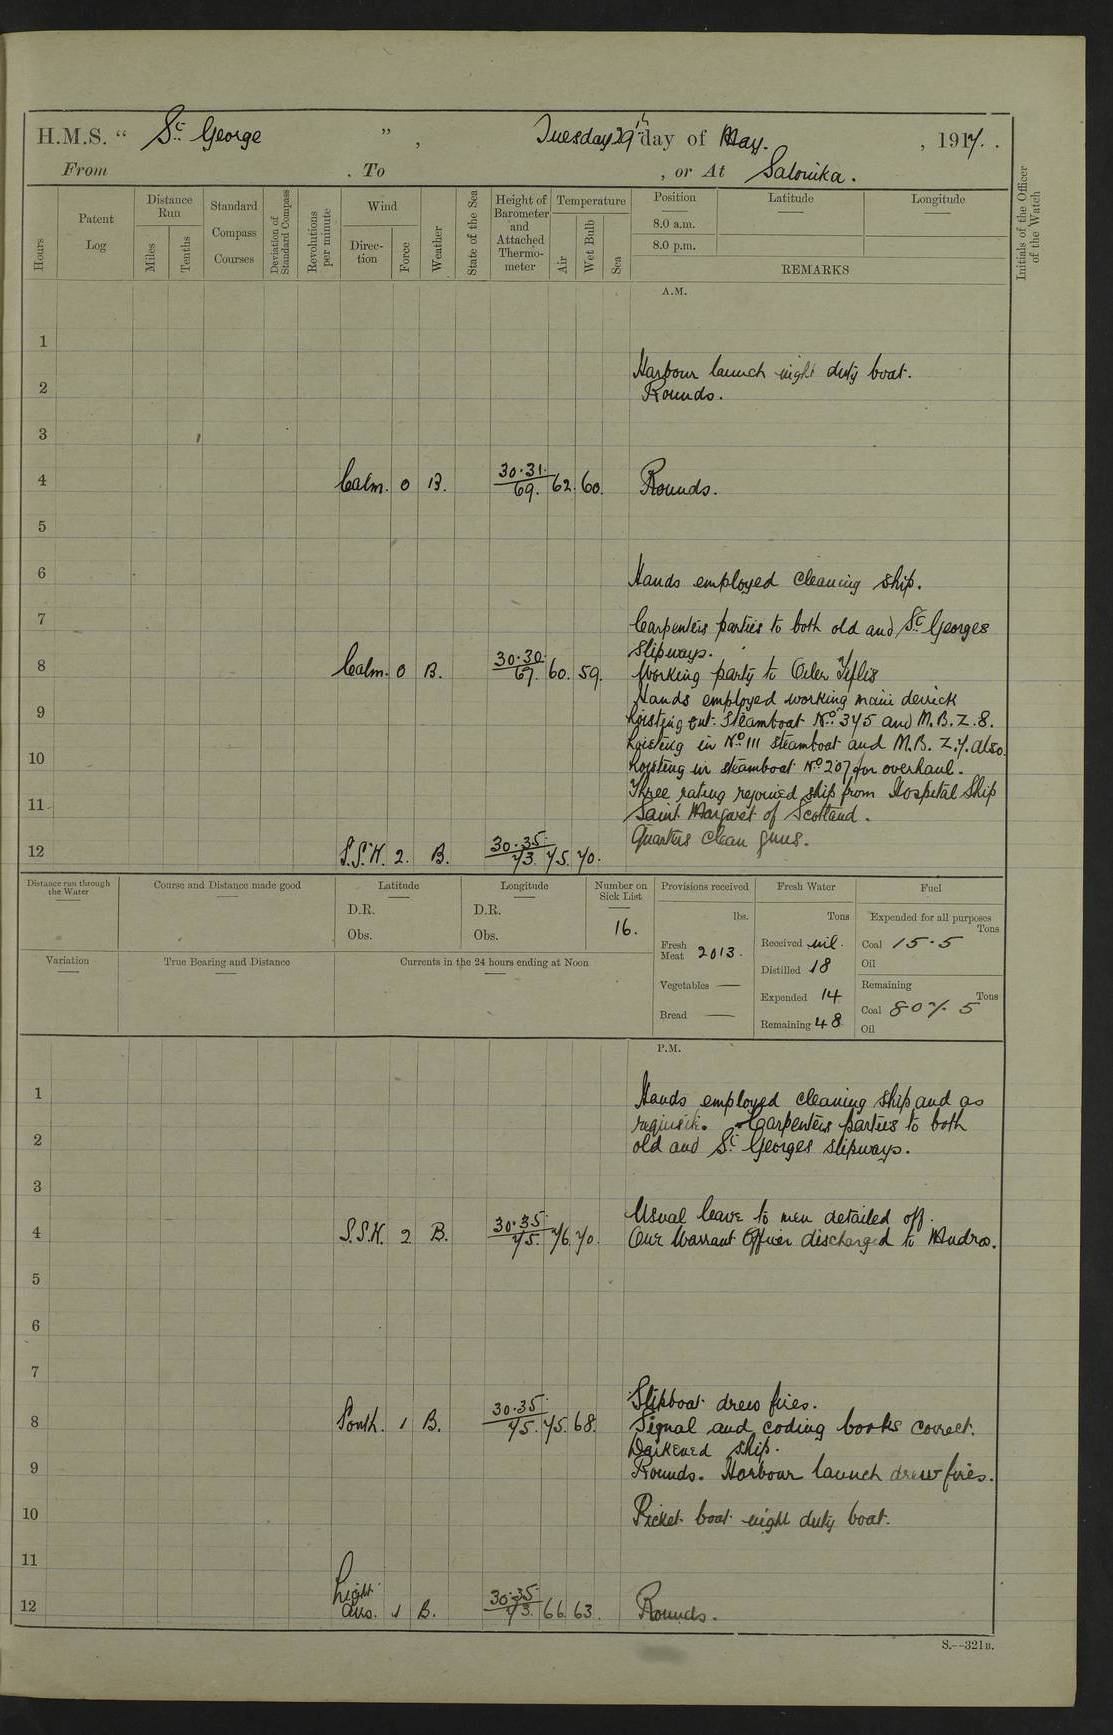 H.M.S. “ St George ” , Tuesday 29th day of May. , 1917.
From . To , or At Salonika.
Hours
Patent Log
Distance Run
Miles
Tenths
Standard Compass Courses
Deviation of Standard Compass
Revolutions per minute
Wind
Direc-tion
Force
Weather
State of the Sea
Height of Barometer and Attached Thermo-meter
Temperature
Air
Wet Bulb
Sea
Position Latitude Longitude
8.0 a.m.
8.0 p.m.
REMARKS
Initials of the Officer of the Watch
A.M.
1
Harbour launch night duty boat.
2 Rounds.
3
4 Calm. 0 B. 30.31 69. 62. 60. Rounds.
5
6 Hands employed cleaning ship.
7 Carpenters parties to both old and St Georges
slipways.
8 Calm. 0 B. 30.30 67. 60. 59. Working party to Oiler Tiflis
Hands employed working main derrick
9 hoisting out Steamboat No. 345 and M.B. Z.8.
hoisting in No. 111 steamboat and M.B. Z.7. also
10 hoisting in steamboat No 207 for overhaul.
Three rating rejoined ship from Hospital Ship
11 Saint Margaret of Scotland.
Quarters clean guns.
12 S.S.W. 2. B. 30.35 73. 75. 70.
Distance run through the Water
Course and Distance made good
Latitude
D.R.
Obs.
Longitude
D.R.
Obs.
Number on Sick List
16.
Provisions received
lbs.
Fresh Meat 2013.
Vegetables —
Bread —
Fresh Water
Tons
Received nil.
Distilled 18
Expended 14
Remaining 48
Fuel
Expended for all purposes
Tons
Coal 15.5
Oil
Remaining
Tons
Coal 807.5
Oil
Variation
True Bearing and Distance
Currents in the 24 hours ending at Noon
P.M.
1 Hands employed cleaning ship and as
requisite. Carpenters parties to both
2 old and St Georges slipways.
3
Usual leave to men detailed off.
4 S.S.W. 2 B. 30.35 75. 76. 70. One Warrant Officer discharged to Mudros.
5
6
7
Slipboat drew fires.
8 South. 1 B. 30.35 75. 75. 68. Signal and coding books correct.
Darkened ship.
9 Rounds. Harbour launch drew fires.
10 Picket boat night duty boat.
11
12 Light airs. 1 B. 30.35 73. 66. 63. Rounds.
S.—321B.